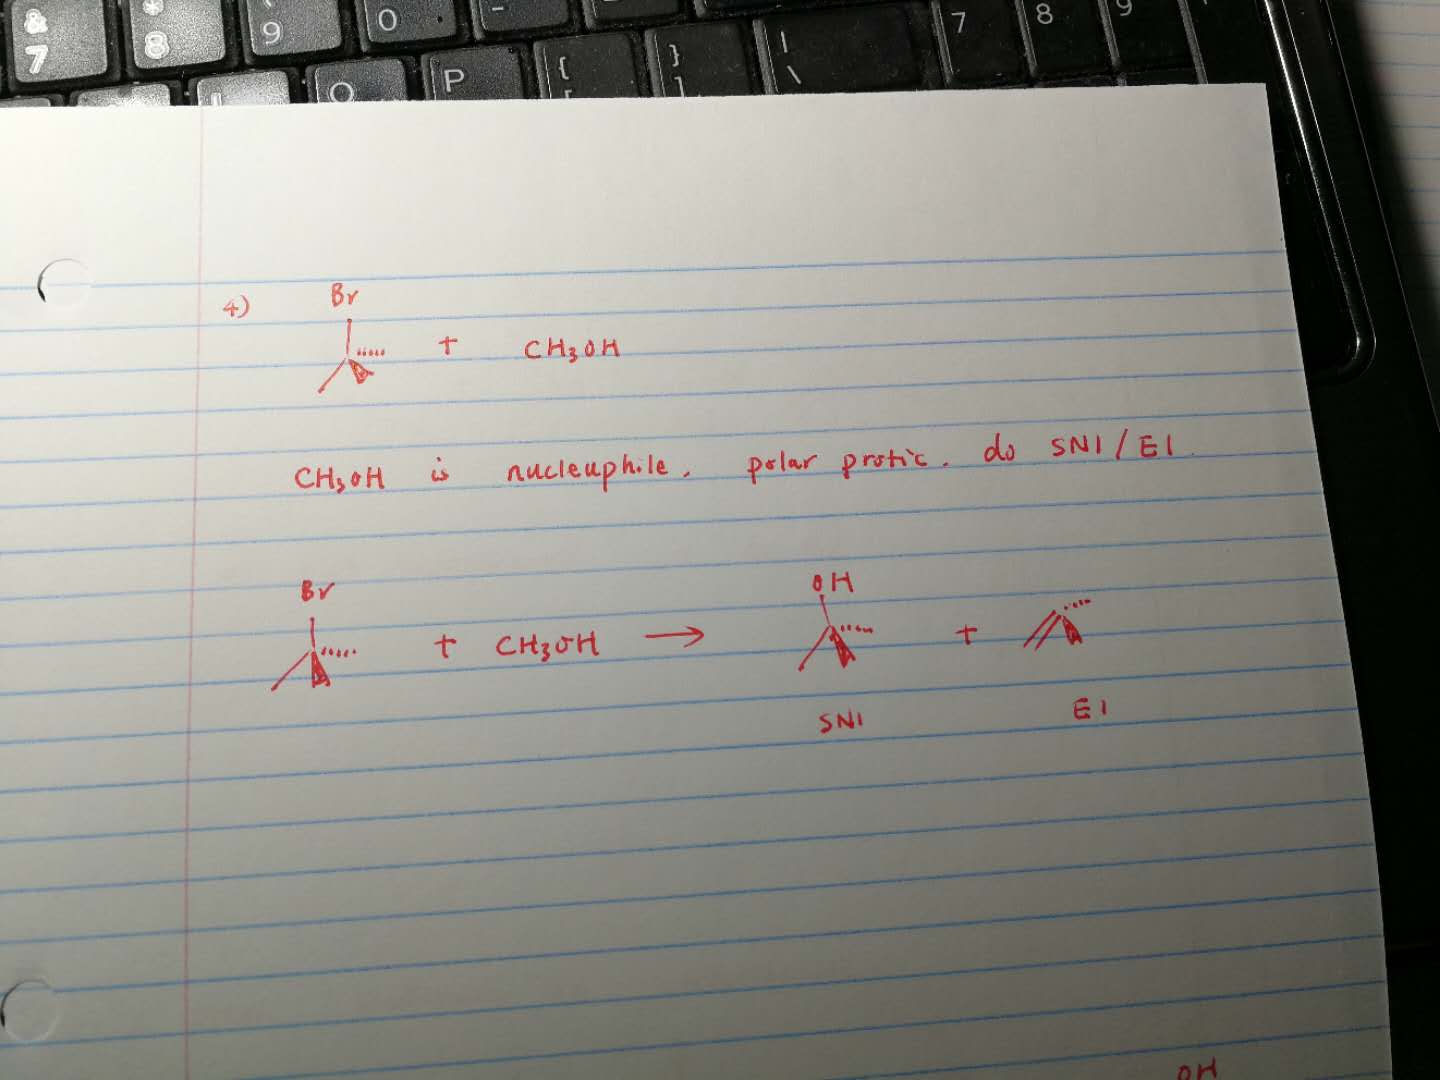 & * ( 
7 8 9 O - 7 8 9
O P { [ } ] | \
4) Br
+ CH3OH
CH3OH is nucleuphile. polar protic. do SN1/E1.
Br OH
+ CH3OH → +
SN1 E1
OH